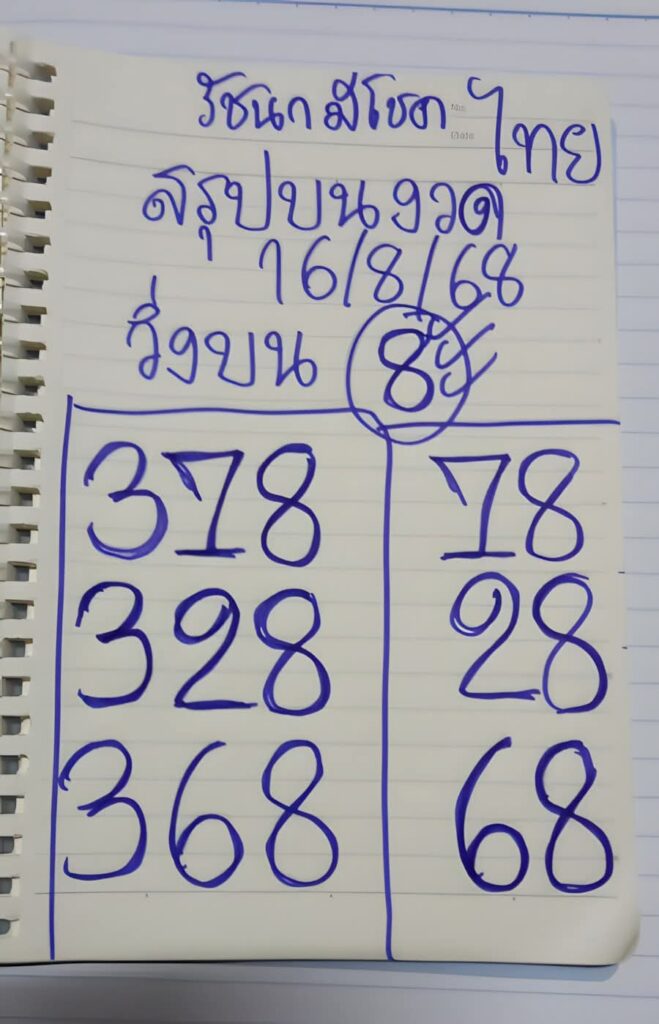 รัชนก มีโชค ไทย
สรุปบนงวด
16/8/68
วิ่งบน 8
378 78
328 28
368 68